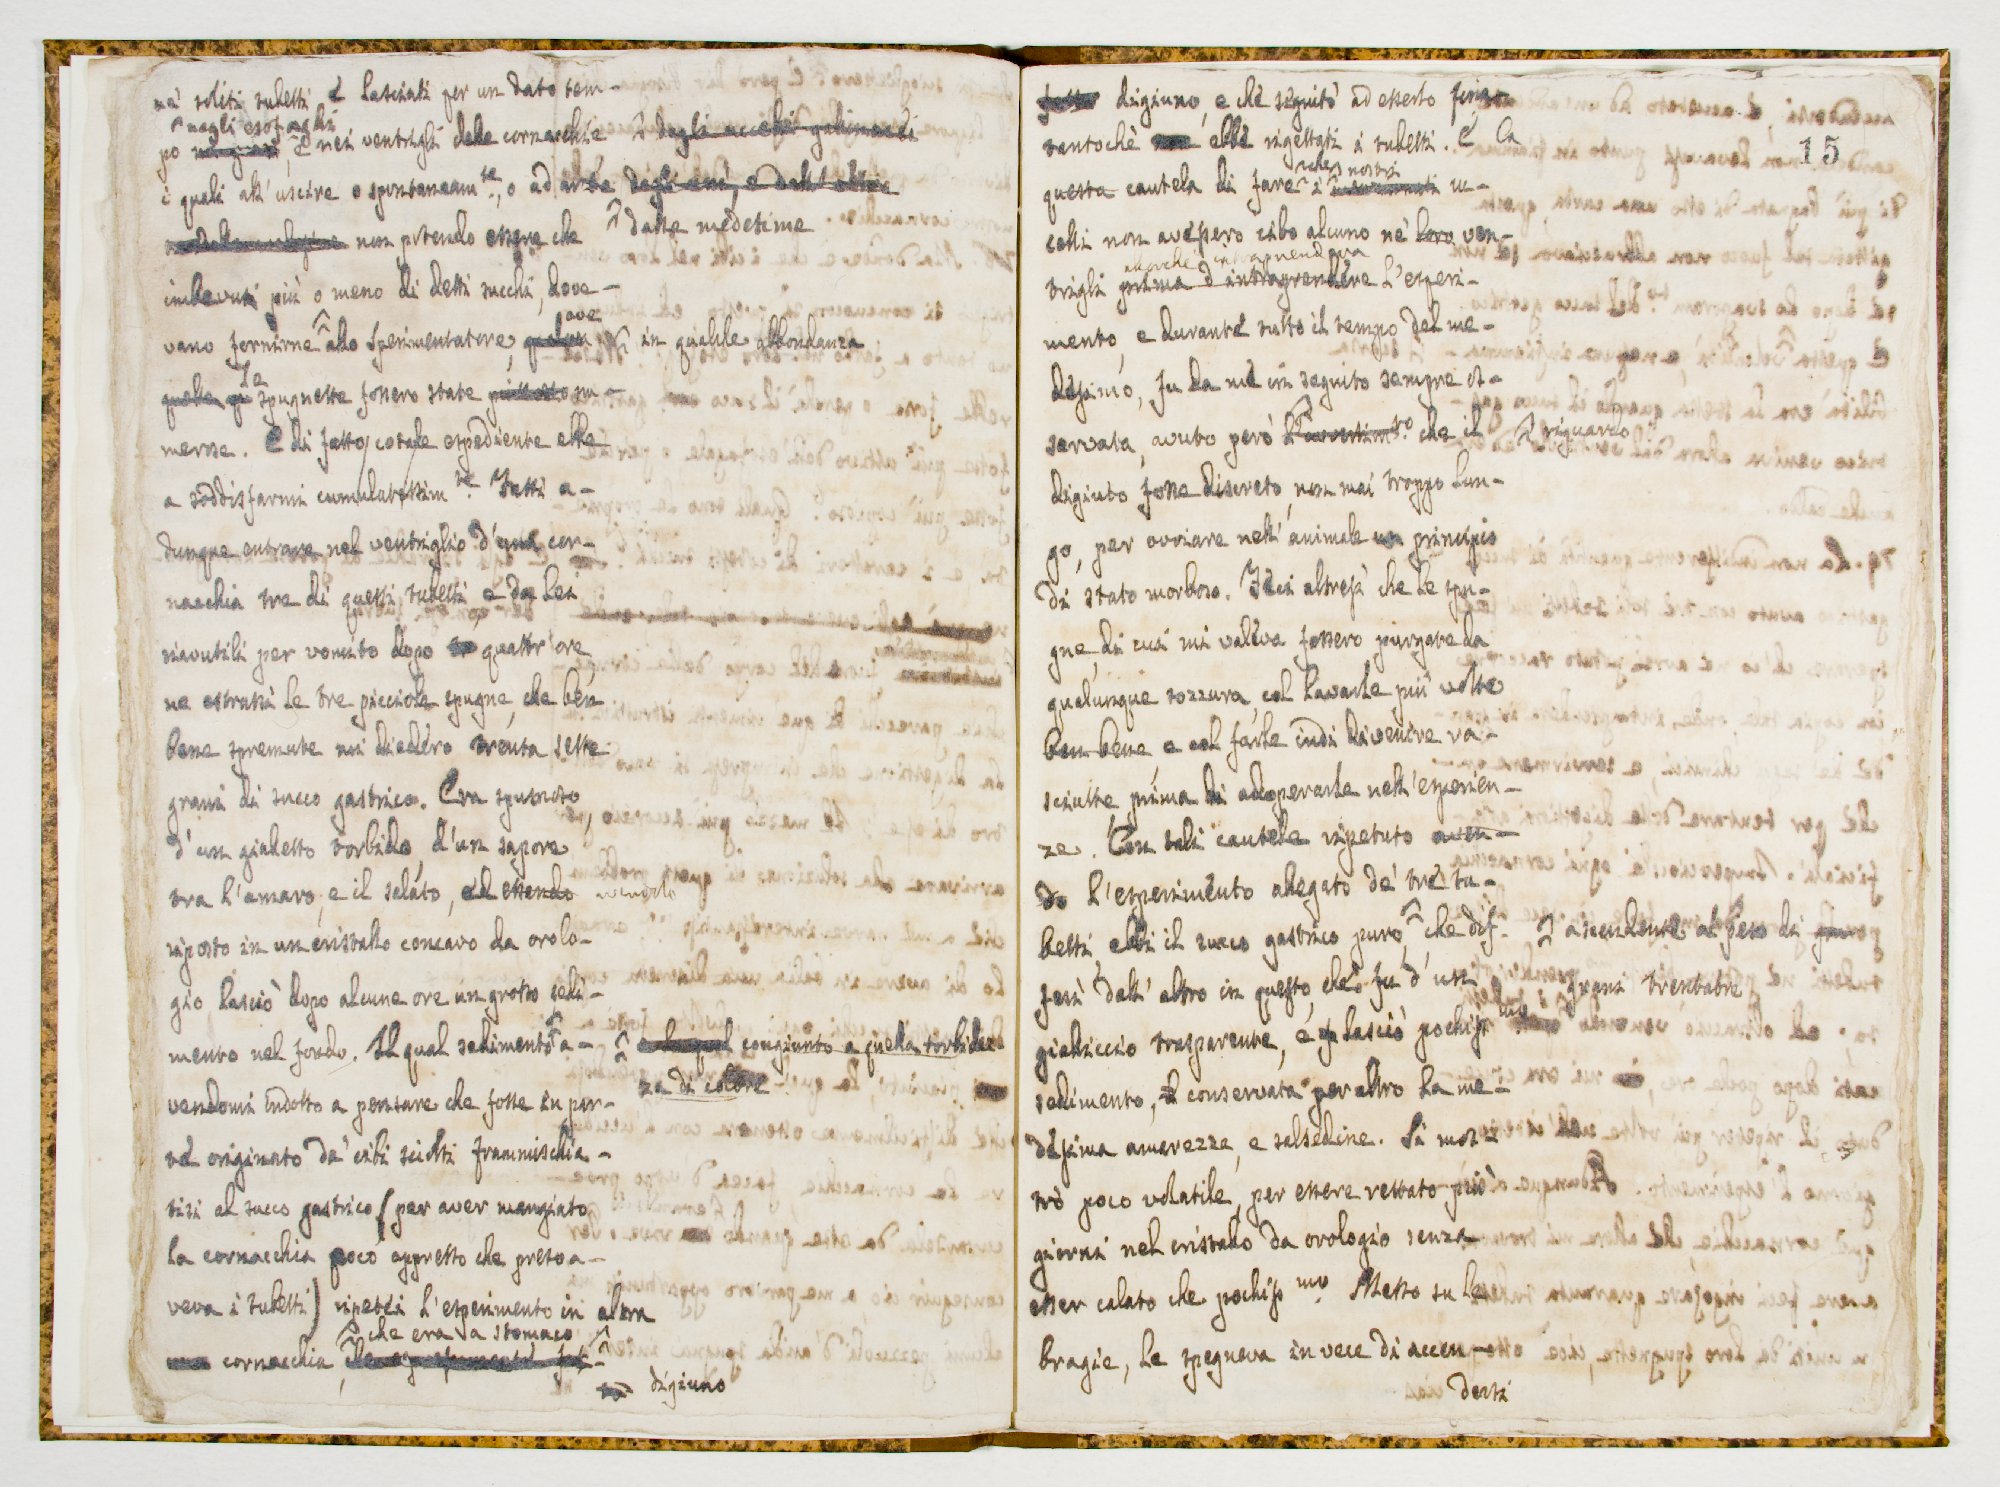 ne' soliti tubetti e lasciati per un dato tem-
negli esofaghi
po e nei ventrigli delle cornacchie degli uccelli gallinacei
i quali all'uscire o spontaneam.te, o ad arte degli uni, e dell' altre
non potendo essere che dalle medesime
imbevuti più o meno di detti succhi, dove-
vano fornirne allo Sperimentatore, ove in qualche abbondanza
le spugnette fossero state piuttosto nu-
merose. E di fatto cotale espediente ebbe
a soddisfarmi cumulatissim.te Fatti a-
dunque entrare nel ventriglio d'una cor-
nacchia tre di questi tubetti e da lei
riavutili per vomito dopo quattr'ore
ne estrassi le tre picciole spugne, che ben
bene spremute mi diedero trenta sette
grani di succo gastrico. Era spumoso,
d'un gialletto torbido, d'un sapore
tra l'amaro, e il salato, ed essendo
riposto in un cristallo concavo da orolo-
gio lasciò dopo alcune ore un grosso sedi-
mento nel fondo. Il qual sedimento a-
congiunto a quella torbidez-
za di colore
vendomi indotto a pensare che fosse in par-
te originato da' cibi sciolti frammischia-
tisi al succo gastrico (per aver mangiato
la cornacchia poco appresso che preso a-
veva i tubetti) ripetei l'esperimento in altra
che era a stomaco
cornacchia,
digiuno
15
digiuno, e che seguitò ad esserlo fino
tantochè ebbe rigettati i tubetti. E la
questa cautela di fare che i nostri uc-
celli non avessero cibo alcuno ne' loro ven-
allorchè intraprendeva
trigli prima d'intraprendere l'esperi-
mento, e durante tutto il tempo del me-
desimo, fu da me in seguito sempre os-
servata, avuto però l'avvertim.to che il riguardo
digiuno fosse discreto, non mai troppo lun-
go, per ovviare nell'animale un principio
di stato morboso. Feci altresì che le spu-
gne, di cui mi valeva fossero purgate da
qualunque sozzura, col lavarle più volte
ben bene e col farle indi divenire ra-
sciutte prima di adoperarle nell'esperien-
ze. Con tali cautele ripetuto aven-
do l'esperimento allegato de' tre tu-
betti, ebbi il succo gastrico puro, che dif-
ascendente al peso di
grani trentatre
ferì dall' altro in questo, che fu d'un
gialliccio trasparente, e lasciò pochiss.mo
sedimento, conservata per altro la me-
desima amarezza, e salsedine. Si mos-
trò poco volatile, per essere restato più
giorni nel cristallo da orologio senza
esser calato che pochiss.mo Messo su le
bragie, le spegneva in vece di accen-
derli